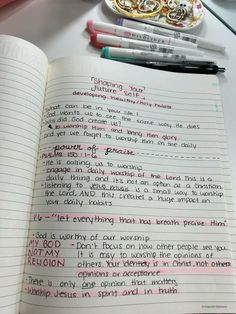 "Shaping Your
Future Self"
developing healthy/Holy habits
What can be in your life!
God wants us to see the same way He does
Why did God create us?
↳ To worship Him and bring Him glory
and yet we forget to worship Him on the daily
power of praise
PSALMS 150:1-6
He is calling us to worship
• engage in daily worship of the Lord. This is a
daily thing and it's not an option as a Christian
• listening to Jesus music is a small way to worship
the Lord, AND this creates a huge impact on
your daily habits
V.6 - "let everything that has breath praise Him"
• God is worthy of our worship
MY GOD
NOT MY
RELIGION
• Don't focus on how other people see you
It is easy to worship the opinions of
others. Your identity is in Christ, not others
opinions or acceptance
• There is only one opinion that matters
• Worship Jesus in spirit and in truth